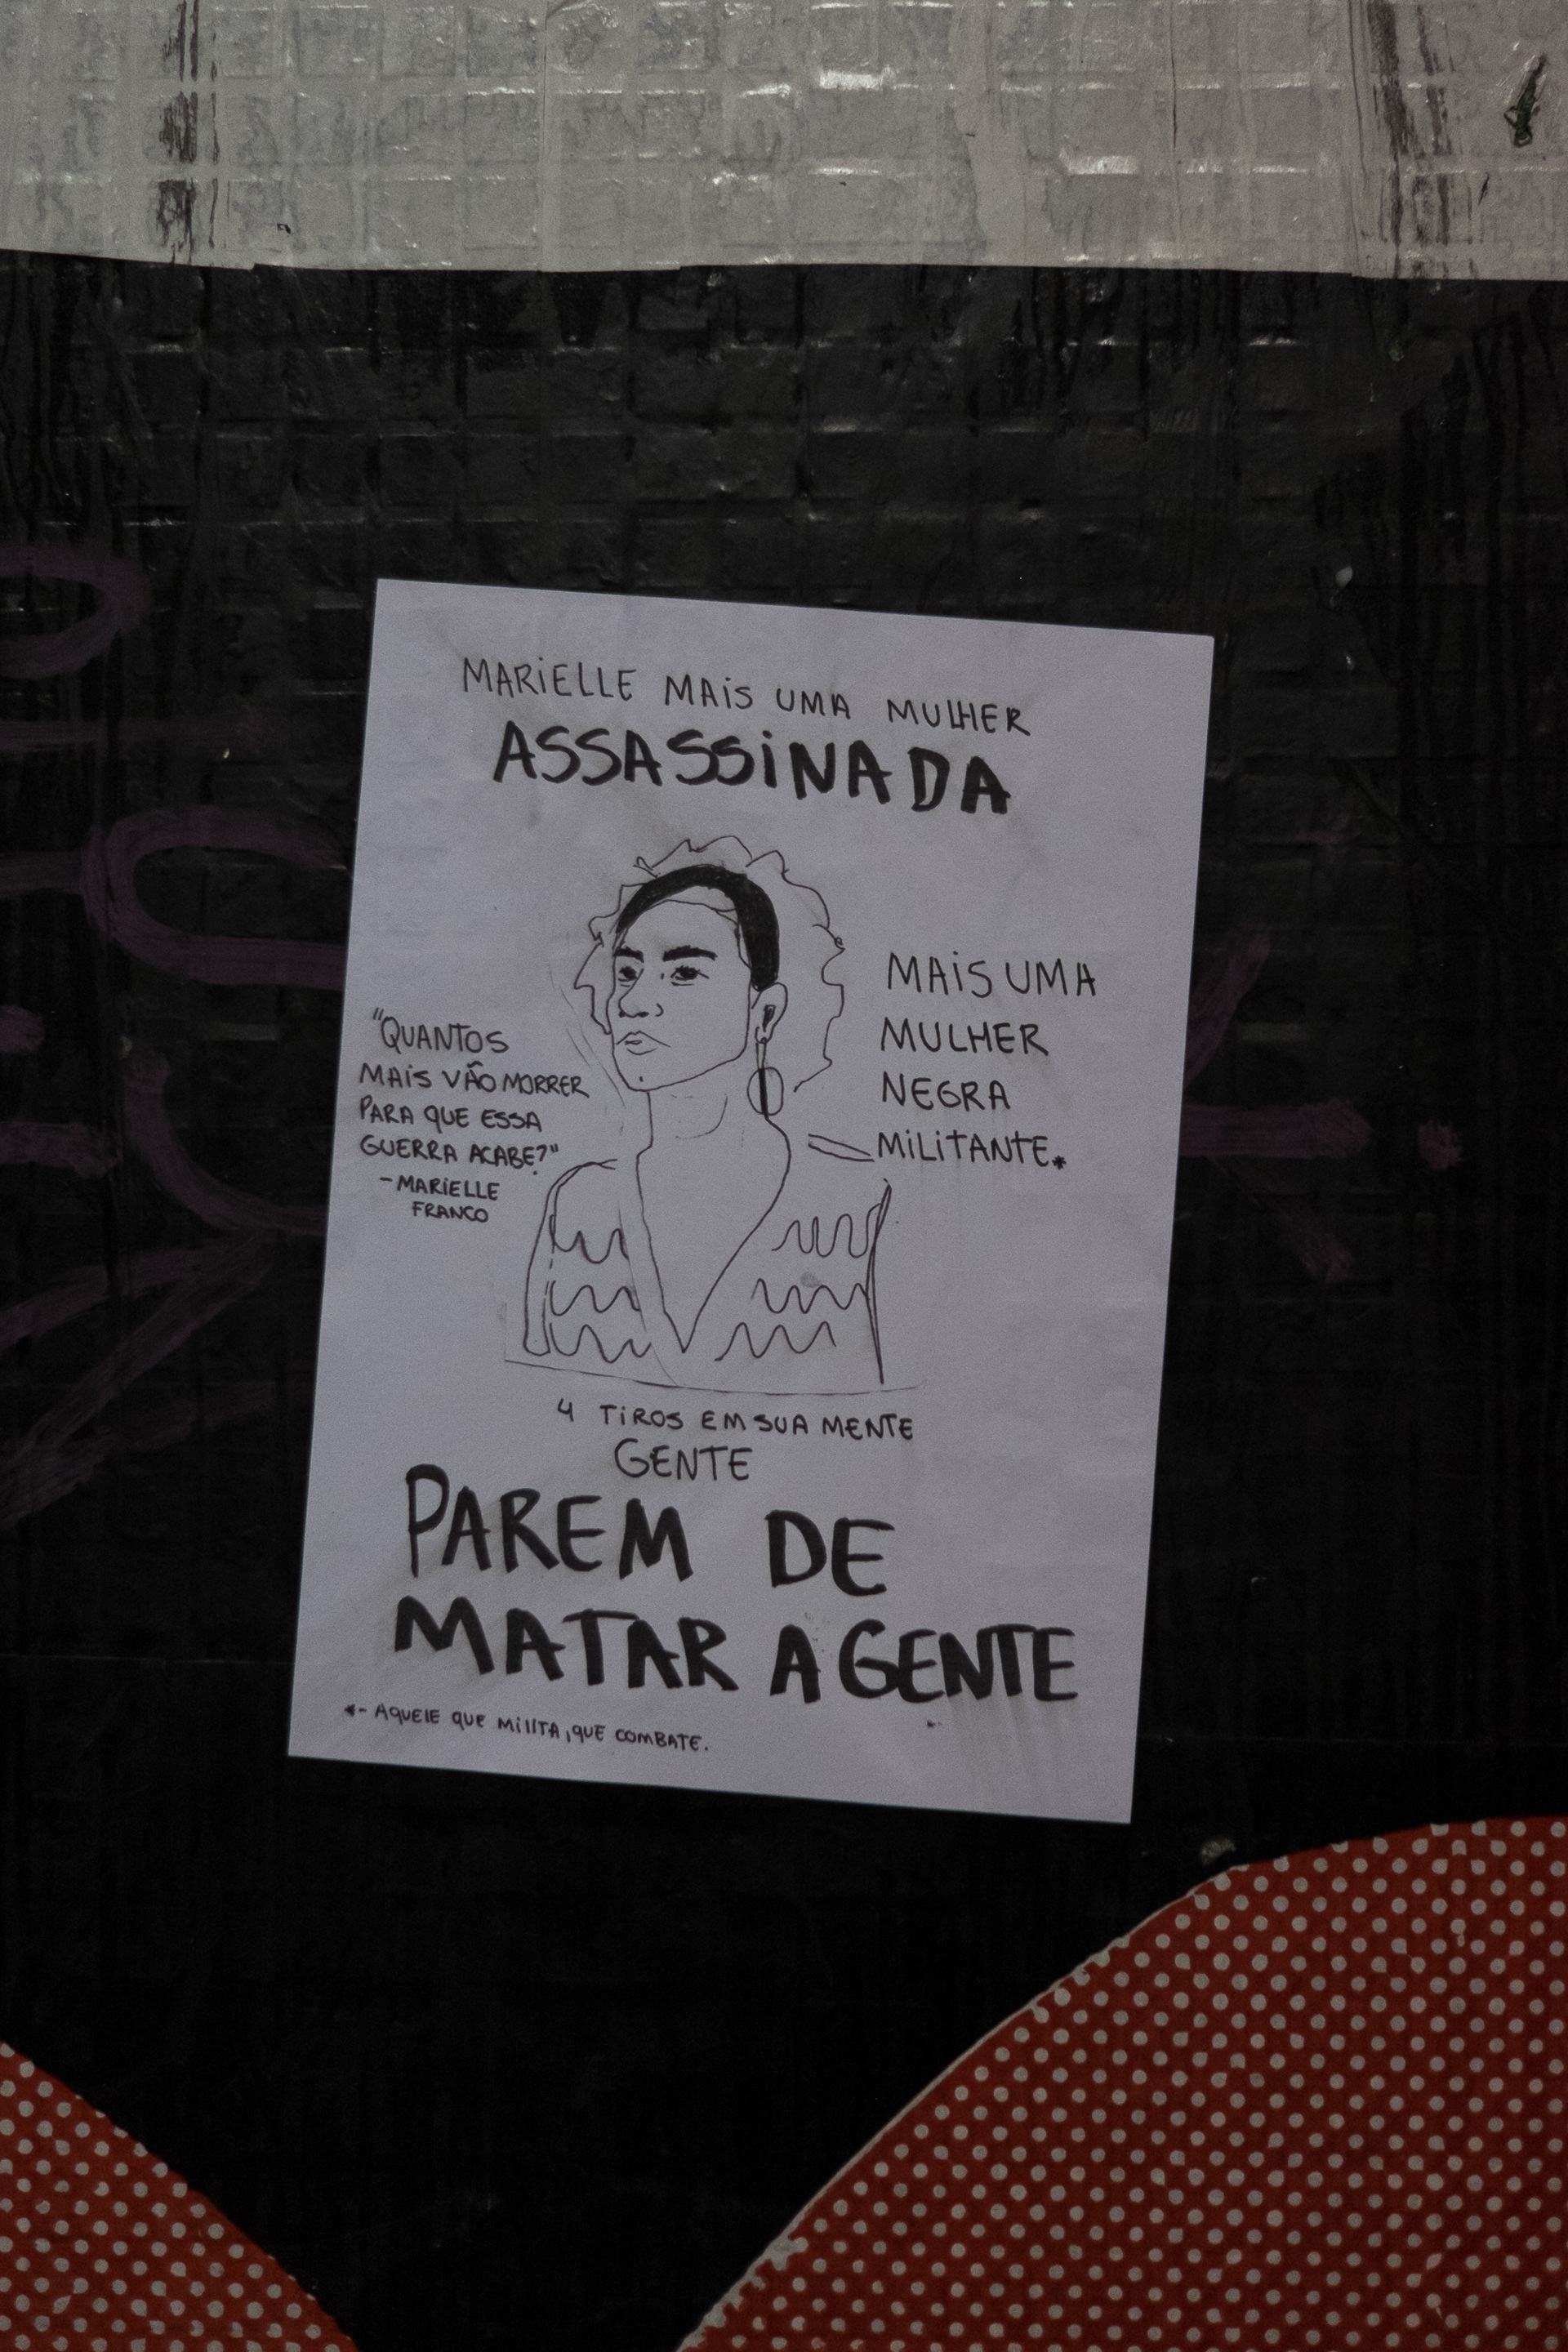 MARIELLE MAIS UMA MULHER
ASSASSINADA
"QUANTOS
MAIS VÃO MORRER
PARA QUE ESSA
GUERRA ACABE?"
- MARIELLE
FRANCO
MAIS UMA
MULHER
NEGRA
MILITANTE*
4 TIROS EM SUA MENTE
GENTE
PAREM DE
MATAR A GENTE
*- AQUELE QUE MILITA, QUE COMBATE.